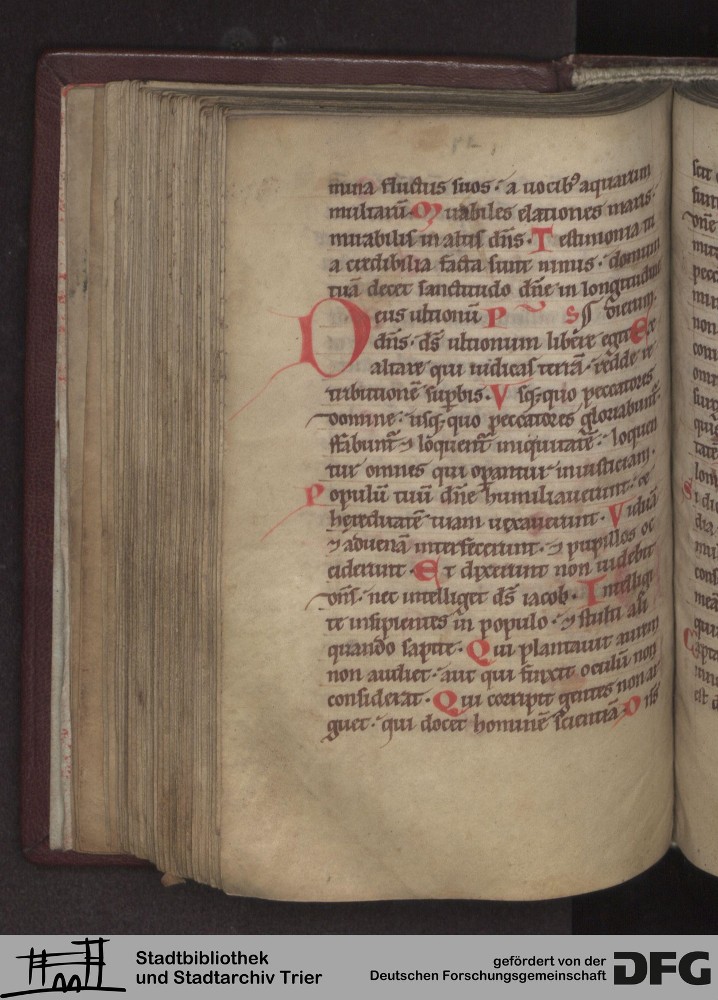 mina fluctus suos · a uocibꝰ aquarum
multarū · Mirabiles elationes maris ·
mirabilis in altis dn̄s · Testimonia tu
a credibilia facta sunt nimis · domum
tuā decet sanctitudo dn̄e in longitudine
Deus ultionū
dn̄s · ds̄ ultionum libere egit · Ex
altare qui iudicas terrā · redde re
tributionē suꝑbis · Vsqꝫ quo peccatores
domine · usqꝫ quo peccatores gloriabunt᷑ ·
Effabunt᷑ ⁊ loquent᷑ iniquitatē · loquen
tur omnes qui oꝑantur iniusticiam ·
Populū tuū dn̄e humiliauerunt · ⁊
hereditatē tuam uexauerunt · Viduā
⁊ aduenā interfecerunt · ⁊ pupillos oc
ciderunt · Et dixerunt non uidebit
dn̄s · nec intelliget ds̄ iacob · Intelligi
te insipientes in populo · ⁊ stulti ali
quando sapite · Qui plantauit aurem
non audiet · aut qui finxit oculū non
considerat · Qui corripit gentes non ar
guet · qui docet hominē scientiā Dn̄s
Stadtbibliothek
und Stadtarchiv Trier
gefördert von der
Deutschen Forschungsgemeinschaft
DFG